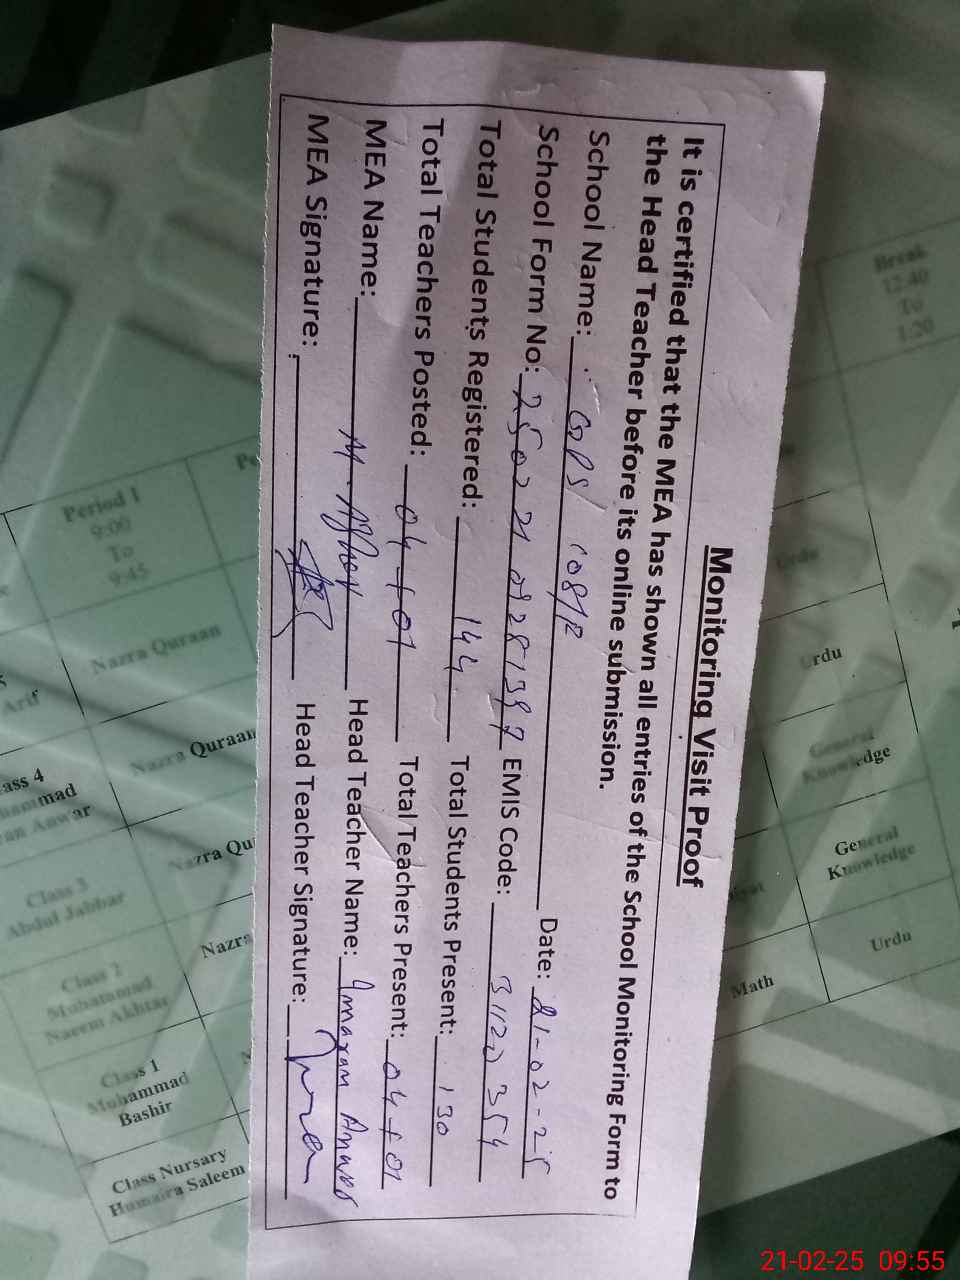 Monitoring Visit Proof
It is certified that the MEA has shown all entries of the School Monitoring Form to
the Head Teacher before its online submission.
School Name: GPS 108/P Date: 21-02-25
School Form No: EMIS Code: 31120354
Total Students Registered: 144 Total Students Present: 130
Total Teachers Posted: 04+01 Total Teachers Present: 04+01
MEA Name: M. Head Teacher Name: Anwar
MEA Signature: Head Teacher Signature:
Break
12:40
To
1:20
Period 1
9:00
To
9:45
Nazra Quraan
Nazra Quraan
Nazra Qu
Nazra
Arif
ass 4
an Anwar
Class 3
Abdul Jabbar
Class 2
Muhammad
Naeem Akhtar
Class 1
Muhammad
Bashir
Class Nursary
Humaira Saleem
Urdu
rdu
General
Knowledge
General
Knowledge
Urdu
Math
21-02-25 09:55